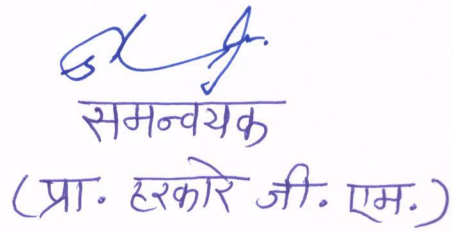 समन्वयक
(प्रा. हरकारे जी. एम.)